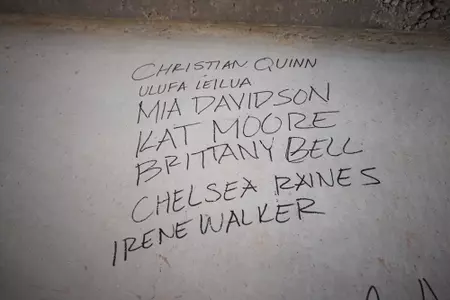 CHRISTIAN QUINN
ULUFA LEILUA
MIA DAVIDSON
KAT MOORE
BRITTANY BELL
CHELSEA RAINES
IRENE WALKER